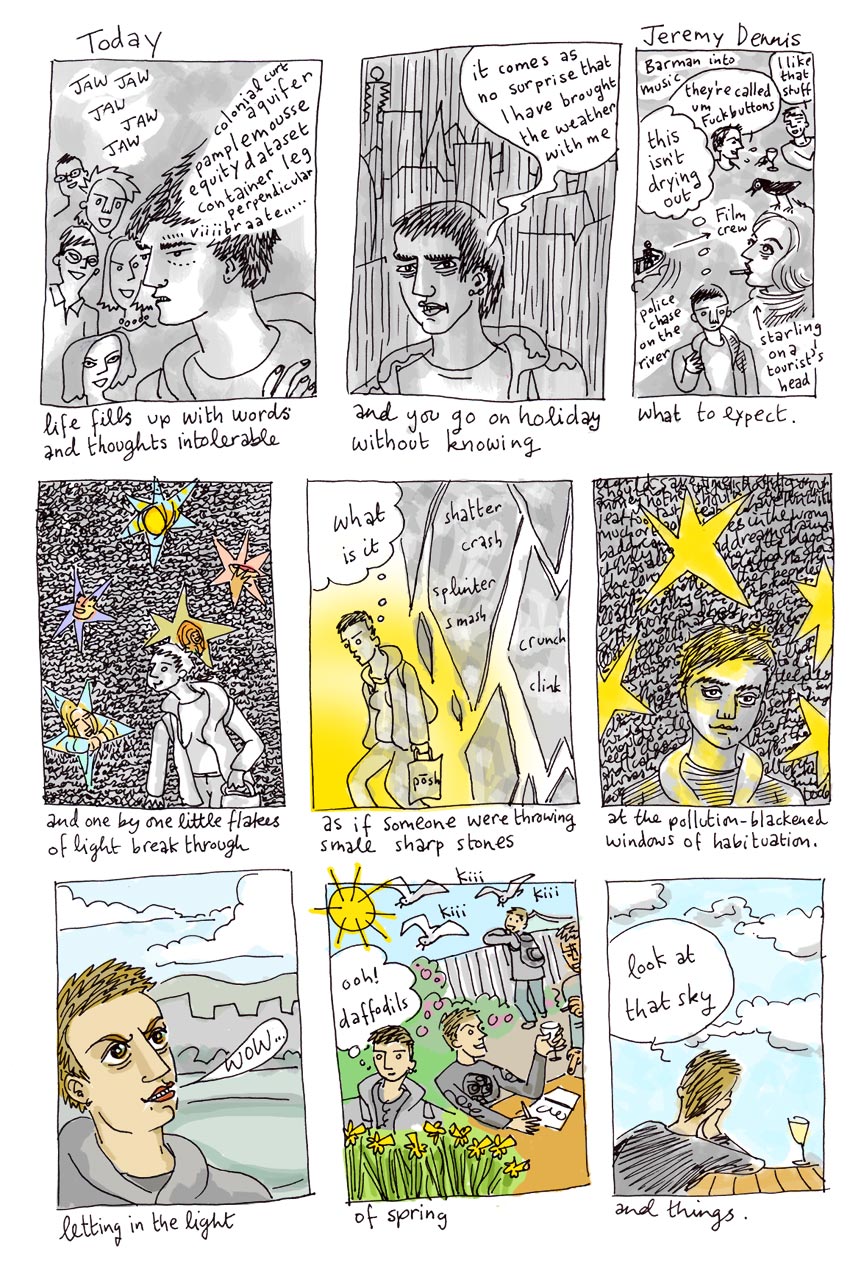 Today
Jeremy Dennis
JAW JAW
JAW
JAW
JAW
colonial curt
aquifer
pamplemousse
equity dataset
container leg
perpendicular
viiiibraate.....
life fills up with words
and thoughts intolerable
it comes as
no surprise that
I have brought
the weather
with me
and you go on holiday
without knowing
Barman into
music
they're called
um
Fuckbuttons
I like
that
stuff
this
isn't
drying
out
Film
crew
police
chase
on the
river
starling
on a
tourist's
head
what to expect.
and one by one little flakes
of light break through
what
is it
shatter
crash
splinter
smash
crunch
clink
pōsh
as if someone were throwing
small sharp stones
at the pollution-blackened
windows of habituation.
WOW...
letting in the light
kiii
kiii
kiii
ooh!
daffodils
of spring
look at
that sky
and things.